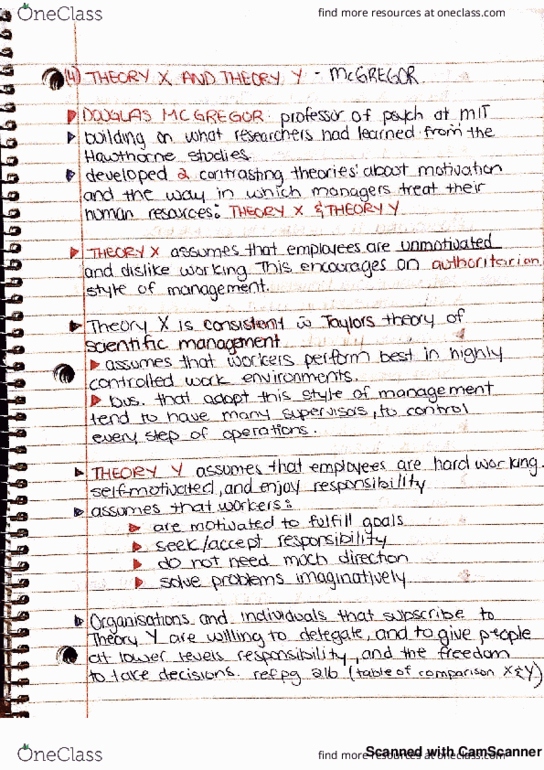 OneClass
find more resources at oneclass.com
(4) THEORY X AND THEORY Y - McGREGOR.
DOUGLAS MCGREGOR professor of psych at MIT
building on what researchers had learned from the
Hawthorne studies.
developed 2 contrasting theories about motivation
and the way in which managers treat their
human resources: THEORY X & THEORY Y
THEORY X assumes that employees are unmotivated
and dislike working. This encourages an authoritarian
style of management.
Theory X is consistent w Taylors theory of
scientific management
assumes that workers perform best in highly
controlled work environments.
bus. that adopt this style of management
tend to have many supervisors, to control
every step of operations.
THEORY Y assumes that employees are hard working.
self-motivated, and enjoy responsibility
assumes that workers:
are motivated to fulfill goals
seek/accept responsibility
do not need much direction
solve problems imaginatively
Organisations and individuals that subscribe to
Theory Y are willing to delegate, and to give people
at lower levels responsibility, and the freedom
to take decisions. ref pg 216 (table of comparison X & Y)
OneClass
find more resources at oneclass.com
Scanned with CamScanner